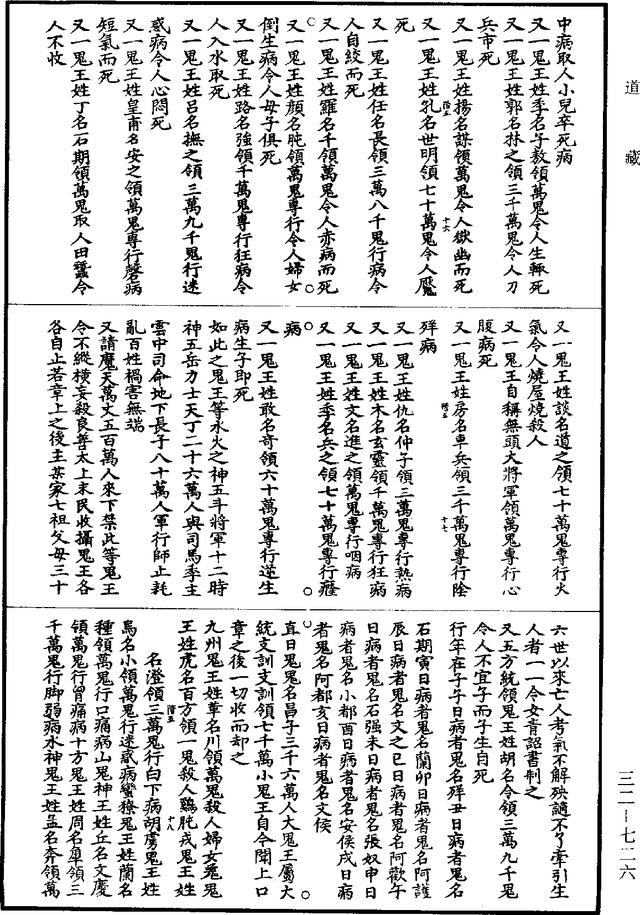 道藏
中病取人小兒卒死病
又一鬼王姓季名子敖領萬鬼令人生輙死
又一鬼王姓郭名林之領三千萬鬼令人刀
兵市死
又一鬼王姓揚名謀領萬鬼令人獄幽而死
又一鬼王姓孔名世明領七十萬鬼令人魘
死
又一鬼王姓任名長領三萬八千鬼行病令
人自絞而死
又一鬼王姓羅名千領萬鬼令人赤病而死
又一鬼王姓顔名肫領萬鬼專行令人婦女
倒生病令人母子俱死
又一鬼王姓路名強領千萬鬼專行狂病令
人入水取死
又一鬼王姓吕名撫之領三萬九千鬼行迷
惑病令人心悶死
又一鬼王姓皇甫名安之領萬鬼專行磬病
短氣而死
又一鬼王姓丁名石期領萬鬼取人田蠶令
人不收
又一鬼王姓談名道之領七十萬鬼專行火
氣令人燒屋燒殺人
又一鬼王自稱無頭大將軍領萬鬼專行心
腹病死
又一鬼王姓房名車兵領三千萬鬼專行除
殟病
又一鬼王姓仇名仲子領三萬鬼專行熱病
又一鬼王姓木名玄靈領千萬鬼專行狂病
又一鬼王姓文名進之領萬鬼專行咽病
又一鬼王姓季名兵之領七十萬鬼專行癃
病
又一鬼王姓敢名奇領六十萬鬼專行逆生
病生子即死
如此之鬼王等水火之神五斗將軍十二時
神五岳力士天丁二十六萬人與司馬季主
雲中司命地下長子八十萬人軍行師止耗
亂百姓禍害無端
又請魔天萬丈五百萬人來下禁此等鬼王
令不縱橫妄殺良善太上末民收攝鬼王各
各自止若章上之後主某家七祖父母三十
六世以來亡人考氣不解殃讁不了牽引生
人者一一令女青詔書制之
又五方統領鬼王姓胡名令領三萬九千鬼
令人不宜子而子生自死
行年在子子日病者鬼名殟丑日病者鬼名
石期寅日病者鬼名蘭卯日病者鬼名阿護
辰日病者鬼名文之巳日病者鬼名阿歡午
日病者鬼名石强未日病者鬼名張奴申日
病者鬼名小都酉日病者鬼名安侯戌日病
者鬼名阿都亥日病者鬼名文侯
直日鬼鬼名昌子三千六萬人大鬼王屬大
統支訓支訓領七千萬小鬼王自今聞上口
章之後一切收而却之
九州鬼王姓韋名川領萬鬼殺人婦女㲋鬼
王姓虎名百方領一鬼殺人鷄肫戎鬼王姓
名澄領三萬鬼行白下病胡虜鬼王姓
馬名小領萬鬼行迷惑病蠻獠鬼王姓蘭名
種領萬鬼行口痛病山鬼神王姓丘名文慶
領萬鬼行胃痛病十方鬼王姓周名卑領三
千萬鬼行脚弱病水神鬼王姓孟名奔領萬
三二—七二六